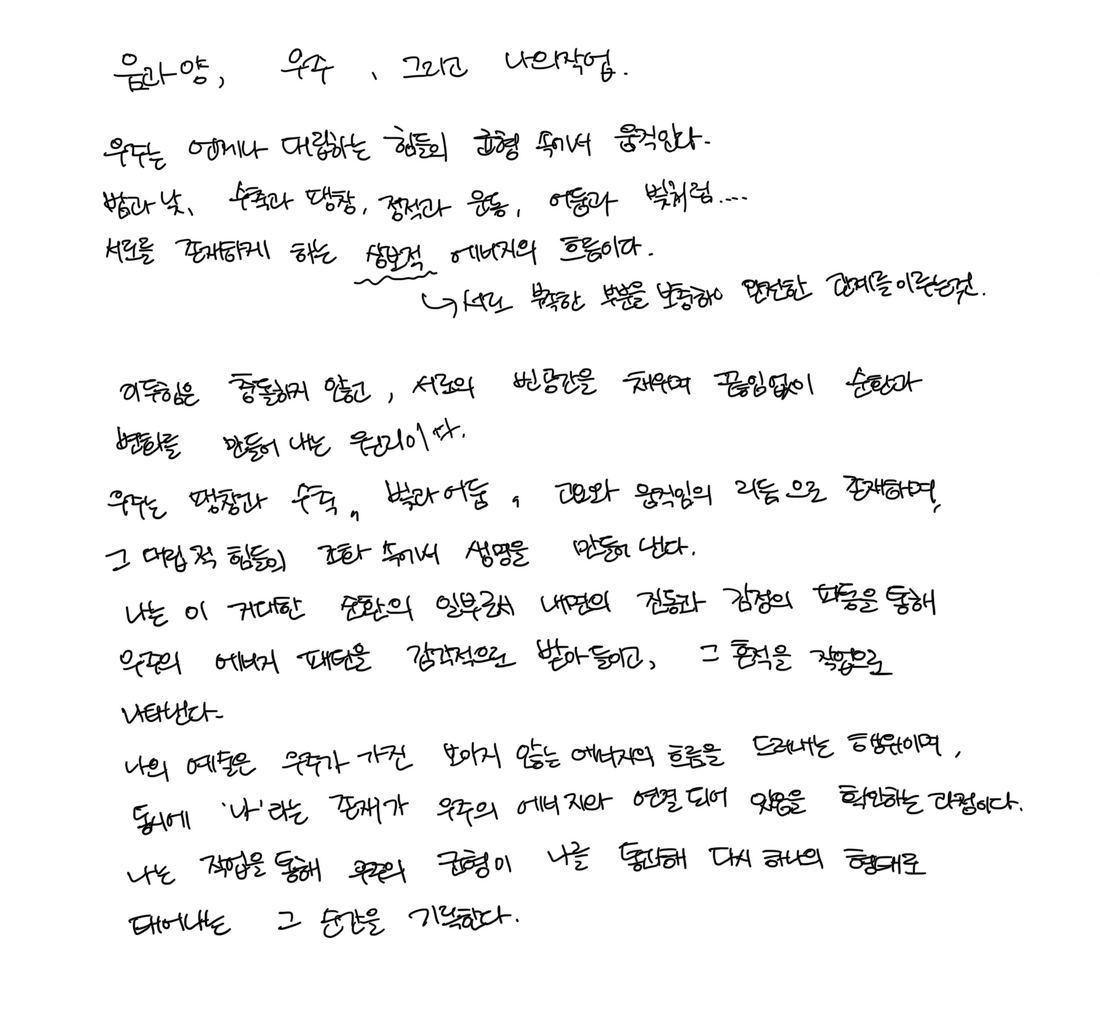 음과 양, 우주, 그리고 나의작업.
우주는 언제나 대립하는 힘들의 균형 속에서 움직인다.
밤과 낮, 수축과 팽창, 정적과 운동, 어둠과 빛처럼....
서로를 존재하게 하는 상보적 에너지의 흐름이다.
↳ 서로 부족한 부분을 보충하여 완전한 관계를 이루는것.
이두힘은 충돌하지 않고, 서로의 빈공간을 채우며 끊임없이 순환과
변화를 만들어 내는 원리이다.
우주는 팽창과 수축, 빛과 어둠, 고요와 움직임의 리듬으로 존재하며,
그 대립적 힘들의 조화 속에서 생명을 만들어 낸다.
나는 이 거대한 순환의 일부로서 내면의 진동과 감정의 파동을 통해
우주의 에너지 패턴을 감각적으로 받아들이고, 그 흔적을 작업으로
나타낸다.
나의 예술은 우주가 가진 보이지 않는 에너지의 흐름을 드러내는 행위이며,
동시에 '나'라는 존재가 우주의 에너지와 연결되어 있음을 확인하는 과정이다.
나는 작업을 통해 우주의 균형이 나를 통과해 다시 하나의 형태로
태어나는 그 순간을 기록한다.